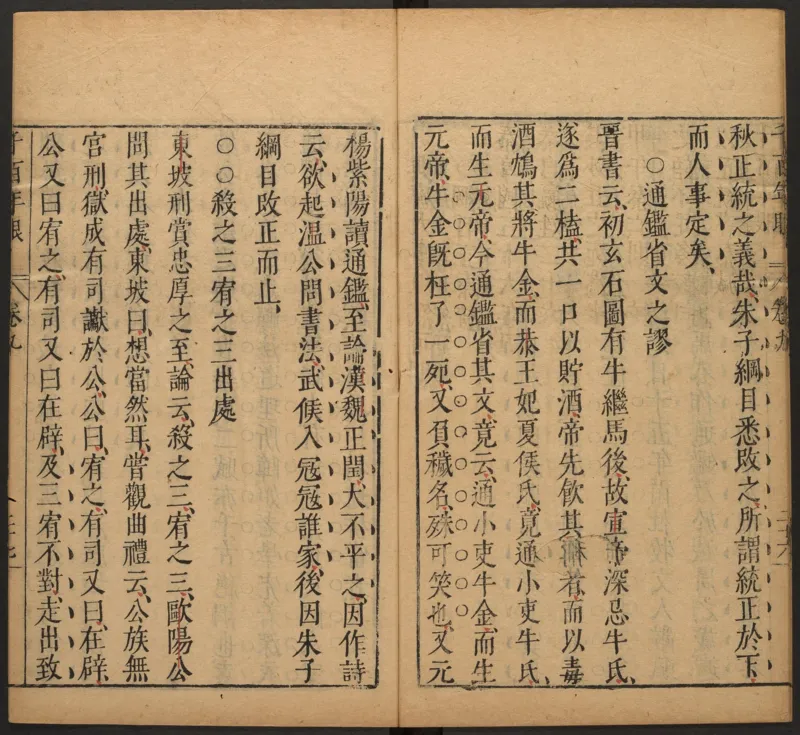 秋正統之義哉朱子綱目悉改之所謂統正於下
而人事定矣
○通鑑省文之謬
晉書云初玄石圖有牛繼馬後故宣帝深忌牛氏
遂爲二榼共一口以貯酒帝先飲其稱者而以毒
酒鴆其將牛金而恭王妃夏侯氏竟通小吏牛氏
而生元帝今通鑑省其文竟云通小吏牛金而生
元帝牛金旣枉了一死又負穢名殊可笑也又元
楊紫陽讀通鑑至論漢魏正閏大不平之因作詩
云欲起溫公問書法武侯入寇寇誰家後因朱子
綱目改正而止
○○殺之三宥之三出處
東坡刑賞忠厚之至論云殺之三宥之三歐陽公
問其出處東坡曰想當然耳嘗觀曲禮云公族無
宮刑獄成有司讞於公公曰宥之有司又曰在辟
公又曰宥之有司又曰在辟及三宥不對走出致
千百年眼 卷九